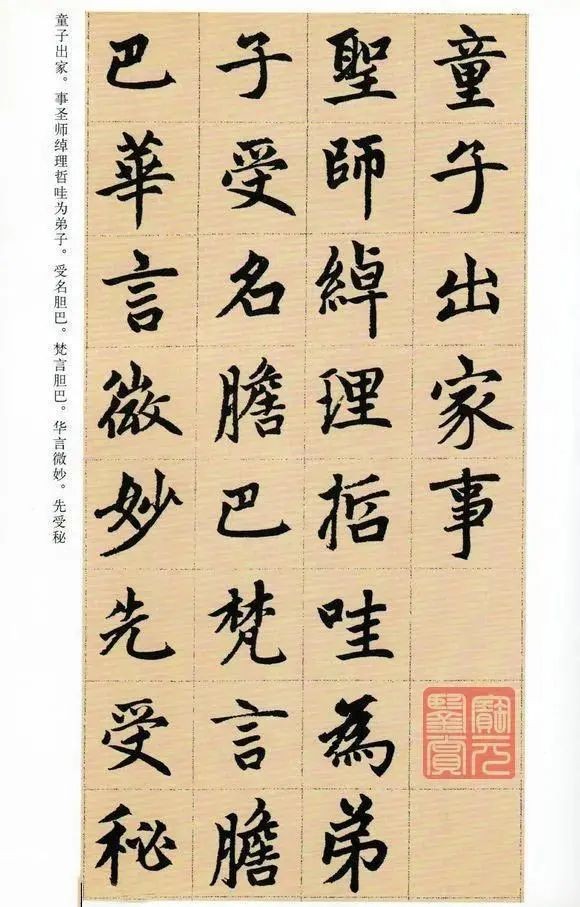 童子出家事
聖師綽理哲哇為弟
子受名膽巴梵言膽
巴華言微妙先受秘
童子出家。事圣师绰理哲哇为弟子。受名胆巴。梵言胆巴。华言微妙。先受秘